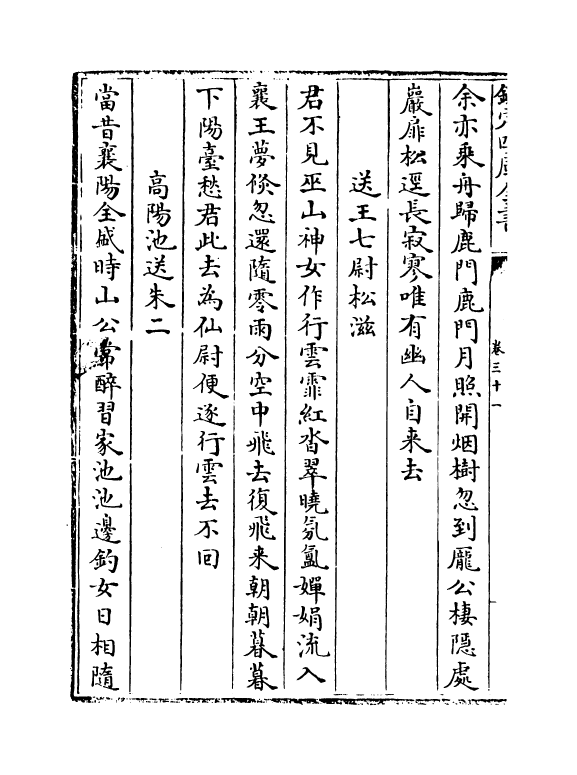 欽定四庫全書
卷三十一
余亦乘舟歸鹿門鹿門月照開烟樹忽到龐公棲隠處
巖扉松逕長寂寥唯有幽人自来去
送王七尉松滋
君不見巫山神女作行雲霏紅沓翠曉氛氲嬋娟流入
襄王夢倐忽還隨零雨分空中飛去復飛来朝朝暮暮
下陽臺愁君此去為仙尉便逐行雲去不回
高陽池送朱二
當昔襄陽全盛時山公常醉習家池池邊釣女日相隨